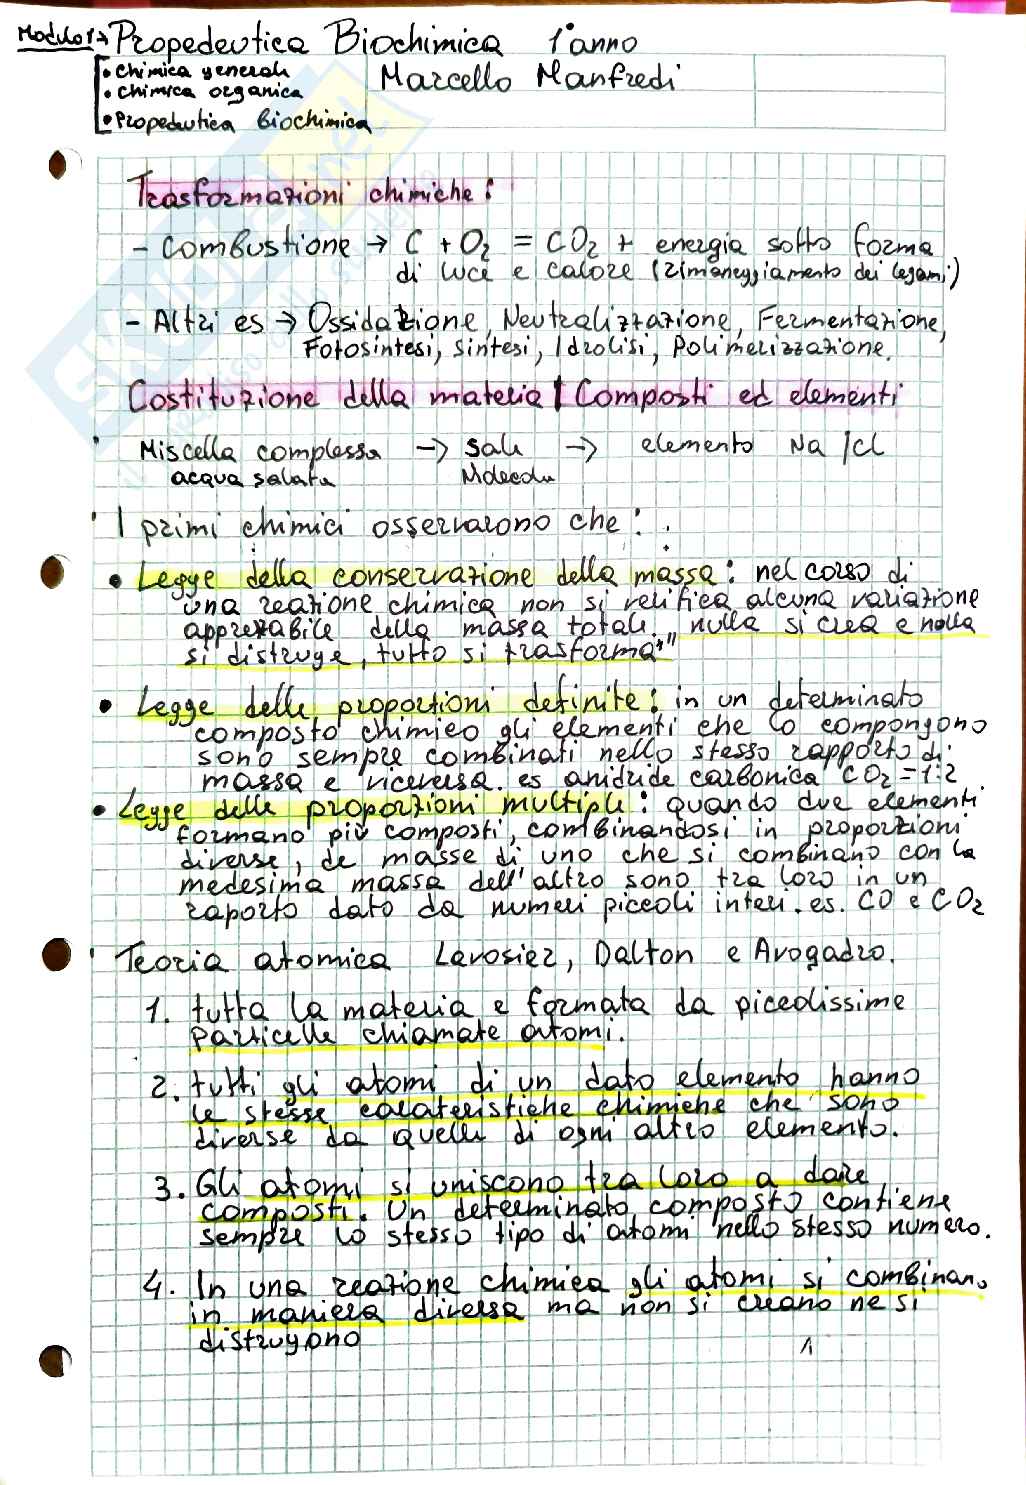 Modulo 1→ Propedeutica Biochimica 1° anno
• Chimica generale
• Chimica organica
• Propedeutica Biochimica
Marcello Manfredi
Trasformazioni chimiche:
- Combustione → C + O₂ = CO₂ + energia sotto forma
di luce e calore (rimaneggiamento dei legami)
- Altri es → Ossidazione, Neutralizzazione, Fermentazione,
Fotosintesi, Sintesi, Idrolisi, Polimerizzazione.
Costituzione della materia | Composti ed elementi
Miscella complessa → Sale → elemento Na/Cl
acqua salata Molecola
I primi chimici osservarono che:
• Legge della conservazione della massa: nel corso di
una reazione chimica non si verifica alcuna variazione
apprezzabile della massa totale. nulla si crea e nulla
si distruge, tutto si trasforma""
• Legge delle proporzioni definite: in un determinato
composto chimico gli elementi che lo compongono
sono sempre combinati nello stesso rapporto di
massa e viceversa. es anidride carbonica CO₂ = 1:2
• Legge delle proporzioni multiple: quando due elementi
formano più composti, combinandosi in proporzioni
diverse, le masse di uno che si combinano con la
medesima massa dell'altro sono tra loro in un
raporto dato da numeri piccoli interi. es. CO e CO₂
Teoria atomica Lavosier, Dalton e Avogadro.
1. tutta la materia e formata da piccolissime
particelle chiamate atomi.
2. tutti gli atomi di un dato elemento hanno
le stesse caratteristiche chimiche che sono
diverse da quelle di ogni altro elemento.
3. Gli atomi si uniscono tra loro a dare
composti. Un determinato composto contiene
sempre lo stesso tipo di atomi nello stesso numero.
4. In una reazione chimica gli atomi si combinano
in maniera diversa ma non si creano ne si
distruggono
1